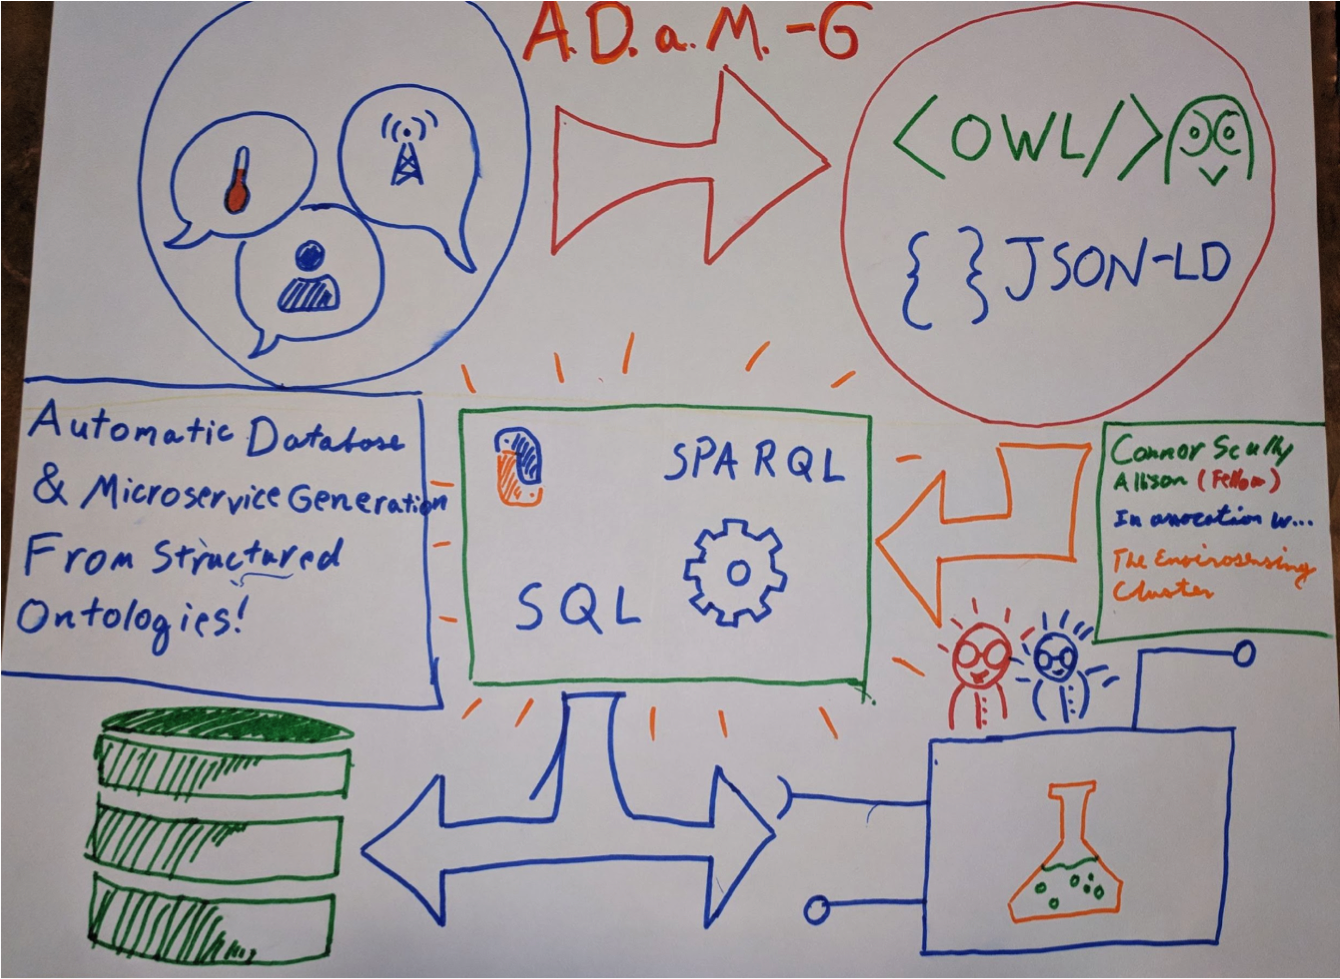 A.D.a.M.-G
<OWL/>
{ } JSON-LD
Automatic Database
& Microservice Generation
From Structured
Ontologies!
SPARQL
SQL
Connor Scully
Allison (Fellow)
In assocation w...
The Envirosensing
Cluster